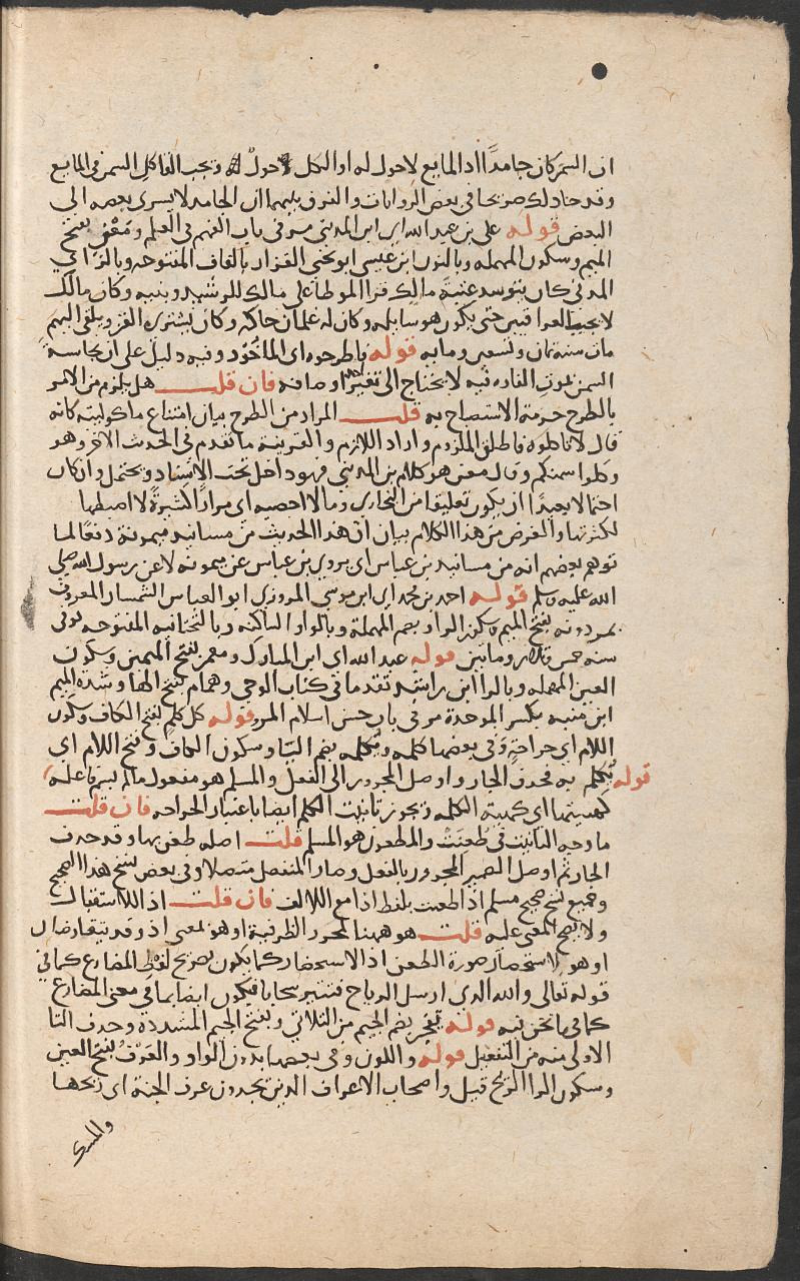 ان السمن كان جامدا اذ المايع لا حول له او الكل حوله ويجب القا كل السمن في المايع
وقد جا ذلك صريحا في بعض الروايات والفرق بينهما ان الجامد لا يسري بعضه الى
البعض قوله علي بن عبد الله اي ابن المديني مر في باب الفهم في العلم ومعن بفتح
الميم وسكون المهمله وبالنون ابن عيسى ابو يحيى القزاز بالقاف المفتوحه وبالزاي
المدني كان يتوسد عتبة مالك قرا الموطا على مالك للرشيد وبنيه وكان مالك
لا يجيب العراقيين حتى يكون هو سايله وكان له غلمان حاكه وكان يشتري القز ويلقي اليهم
مات سنه ثمان وتسعين ومايه قوله فاطرحوه اي الماخوذ وفيه دليل على ان نجاسة
السمن بموت الفاره فيه لا يحتاج الى تغير اوصافه فان قلت هل يلزم من الامر
بالطرح حرمة الاستصباح به قلت المراد من الطرح بيان امتناع ماكوليته كانه
قال لا تاكلوه فاطلق الملزوم واراد اللازم والقرينة ما تقدم في الحديث الاخر وهو
وكلوا سمنكم وقال معن هو كلام بن المديني فهو داخل تحت الاسناد ويحتمل وان كان
احتمالا بعيدا ان يكون تعليقا من البخاري وما لا احصيه اي مرارا كثيرة لا اضبطها
لكثرتها والغرض من هذا الكلام بيان ان هذا الحديث من مسانيد ميمونة دفعا لما
توهم بعضهم انه من مسانيد بن عباس اي يروي بن عباس عن ميمونه لا عن رسول الله صلى
الله عليه وسلم قوله احمد بن محمد اي ابن موسى المروزي ابو العباس السمسار المعروف
بمردويه بفتح الميم وسكون الراء وبضم المهملة وبالواو الساكنه وبالتحتانيه المفتوحه توفي
سنه خمس وثلاثين ومايتين قوله عبد الله اي ابن المبارك ومعمر بفتح الميمين وسكون
العين المهمله وبالرا ابن راشد تقدما في كتاب الوحي وهمام بفتح الها وشدة الميم
ابن منبه بكسر الموحدة مر في باب حسن اسلام المرء قوله كل كلم بفتح الكاف وسكون
اللام اي جراحة وفي بعضها كلمه ويكلمه بضم اليا وسكون الكاف وفتح اللام اي
يكلم به فحذف الجار واوصل المجرور الى الفعل والمسلم هو مفعول ما لم يسم فاعله قوله
كهيئتها اي كهيئة الكلمه ويجوز تانيث الكلم ايضا باعتبار الجراحه فان قلت
ما وجه التانيث في طعنت والمطعون هو المسلم قلت اصله طعن بها وقد حذف
الجار ثم اوصل الضمير المجرور بالفعل وصار المنفصل متصلا وفي بعض نسخ هذا الصحيح
وجميع نسخ صحيح مسلم اذا طعنت بلفظ اذا مع الالف فان قلت اذا للاستقبال
ولا يصح المعنى عليه قلت هو ههنا لمجرد الظرفية او هو بمعنى اذ وقد يتقارضان
او هو لاستحضار صورة الطعن اذ الاستحضار كما يكون بصريح لفظ المضارع كما في
قوله تعالى والله الذي ارسل الرياح فتثير سحابا فيكون ايضا بما في معنى المضارع
كما في ما نحن فيه قوله تفجر بضم الجيم من الثلاثي وبفتح الجيم المشددة وحذف التا
الاولى منه من التفعيل قوله واللون وفي بعضها بدون الواو والعرف بفتح العين
وسكون الرا الريح قيل واصحاب الاعراف الذين يجدون عرف الجنة اي ريحها
والمسك